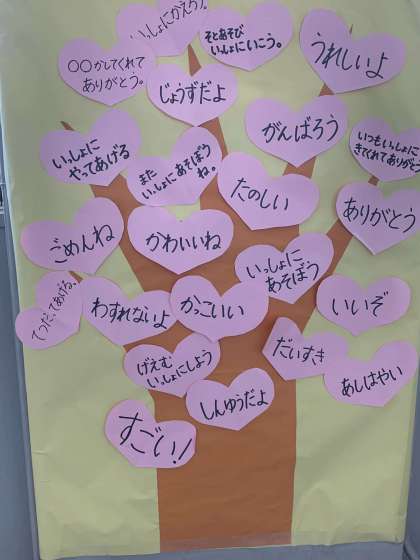 いっしょにかえろう。
そとあそび
いっしょにいこう。
うれしいよ
○○かしてくれて
ありがとう。
じょうずだよ
がんばろう
いつもいっしょに
きてくれてありがとう
いっしょに
やってあげる
また
いっしょにあそぼう
ね。
たのしい
ありがとう
ごめんね
かわいいね
いっしょに
あそぼう
てつだってあげる。
わすれないよ
かっこいい
いいぞ
げえむ
いっしょにしよう
だいすき
あしはやい
しんゆうだよ
すごい!